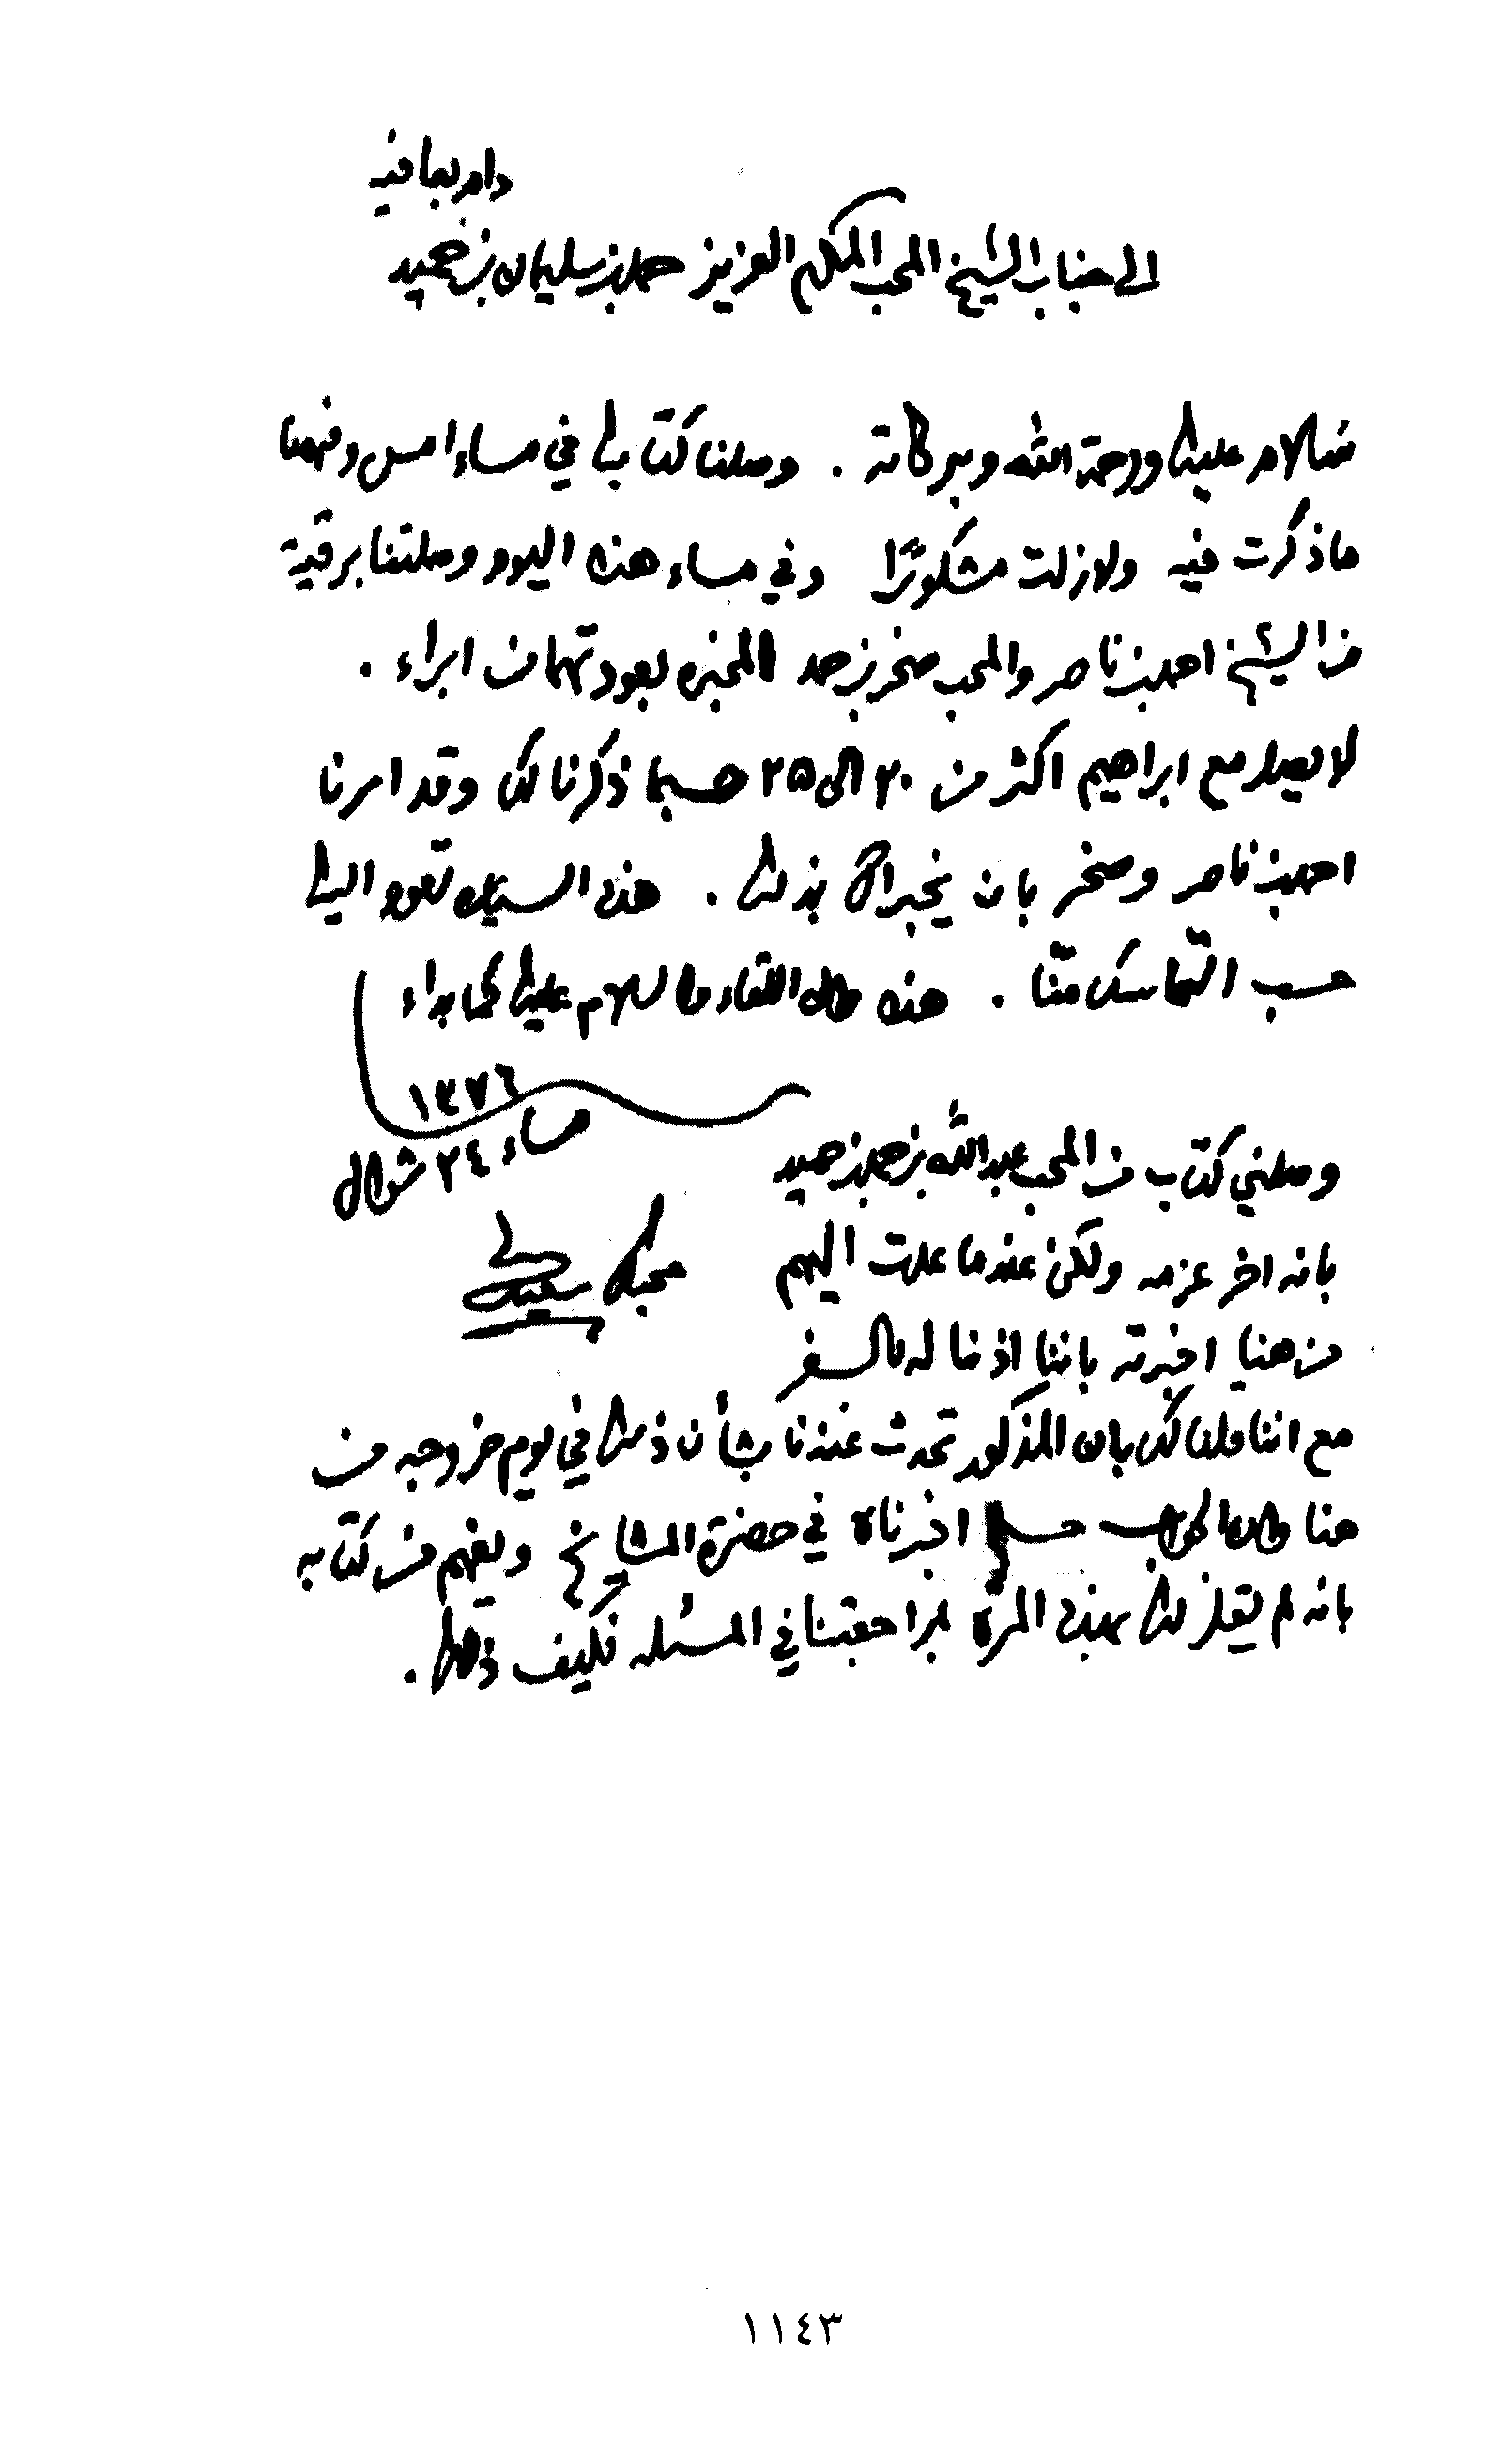 دام بعافيه
الى جناب الشيخ المحب المكرم العزيز حمد بن سليمان بن حميد
سلام عليك ورحمة الله وبركاته . وصلنا كتابك في مساء امس وفهمنا
ما ذكرت فيه ولا زلت مشكورًا وفي مساء هذا اليوم وصلتنا برقية
من الشيخ احمد بن ناصر والمحب صخر بن حمد المخبره بعودتهما من ابراء .
لا يصل مع ابراهيم اكثر من ٢٠ الى ٢٥ حسبما ذكرنا لك وقد امرنا
احمد بن ناصر وصخر بان يخبراك بذلك . هذه السياره تعود اليك
حسب التماسك منّا . هذه والى اللقاء والسلام عليك كما بداء
١٣٧٦
مساء ٢٤ شوال
محبك سعيد
وصلني كتاب من المحب عبدالله بن حمد بن حميد
بانه اخر عزمه ولكن عندما عدت اليهم
من هنا اخبرته باننا اذنا له بالسفر
مع اننا قلنا لك بان المذكور تحدث عندنا بشأن ذلك في يوم خروجه من
هنا وكان الجواب حسبما اخبرناك في حضرة المشايخ ويفهم من كتابه
بانه لم يقل لك بهذه المرة بمراجعتنا في المسئله فكيف ذلك .
١١٤٣